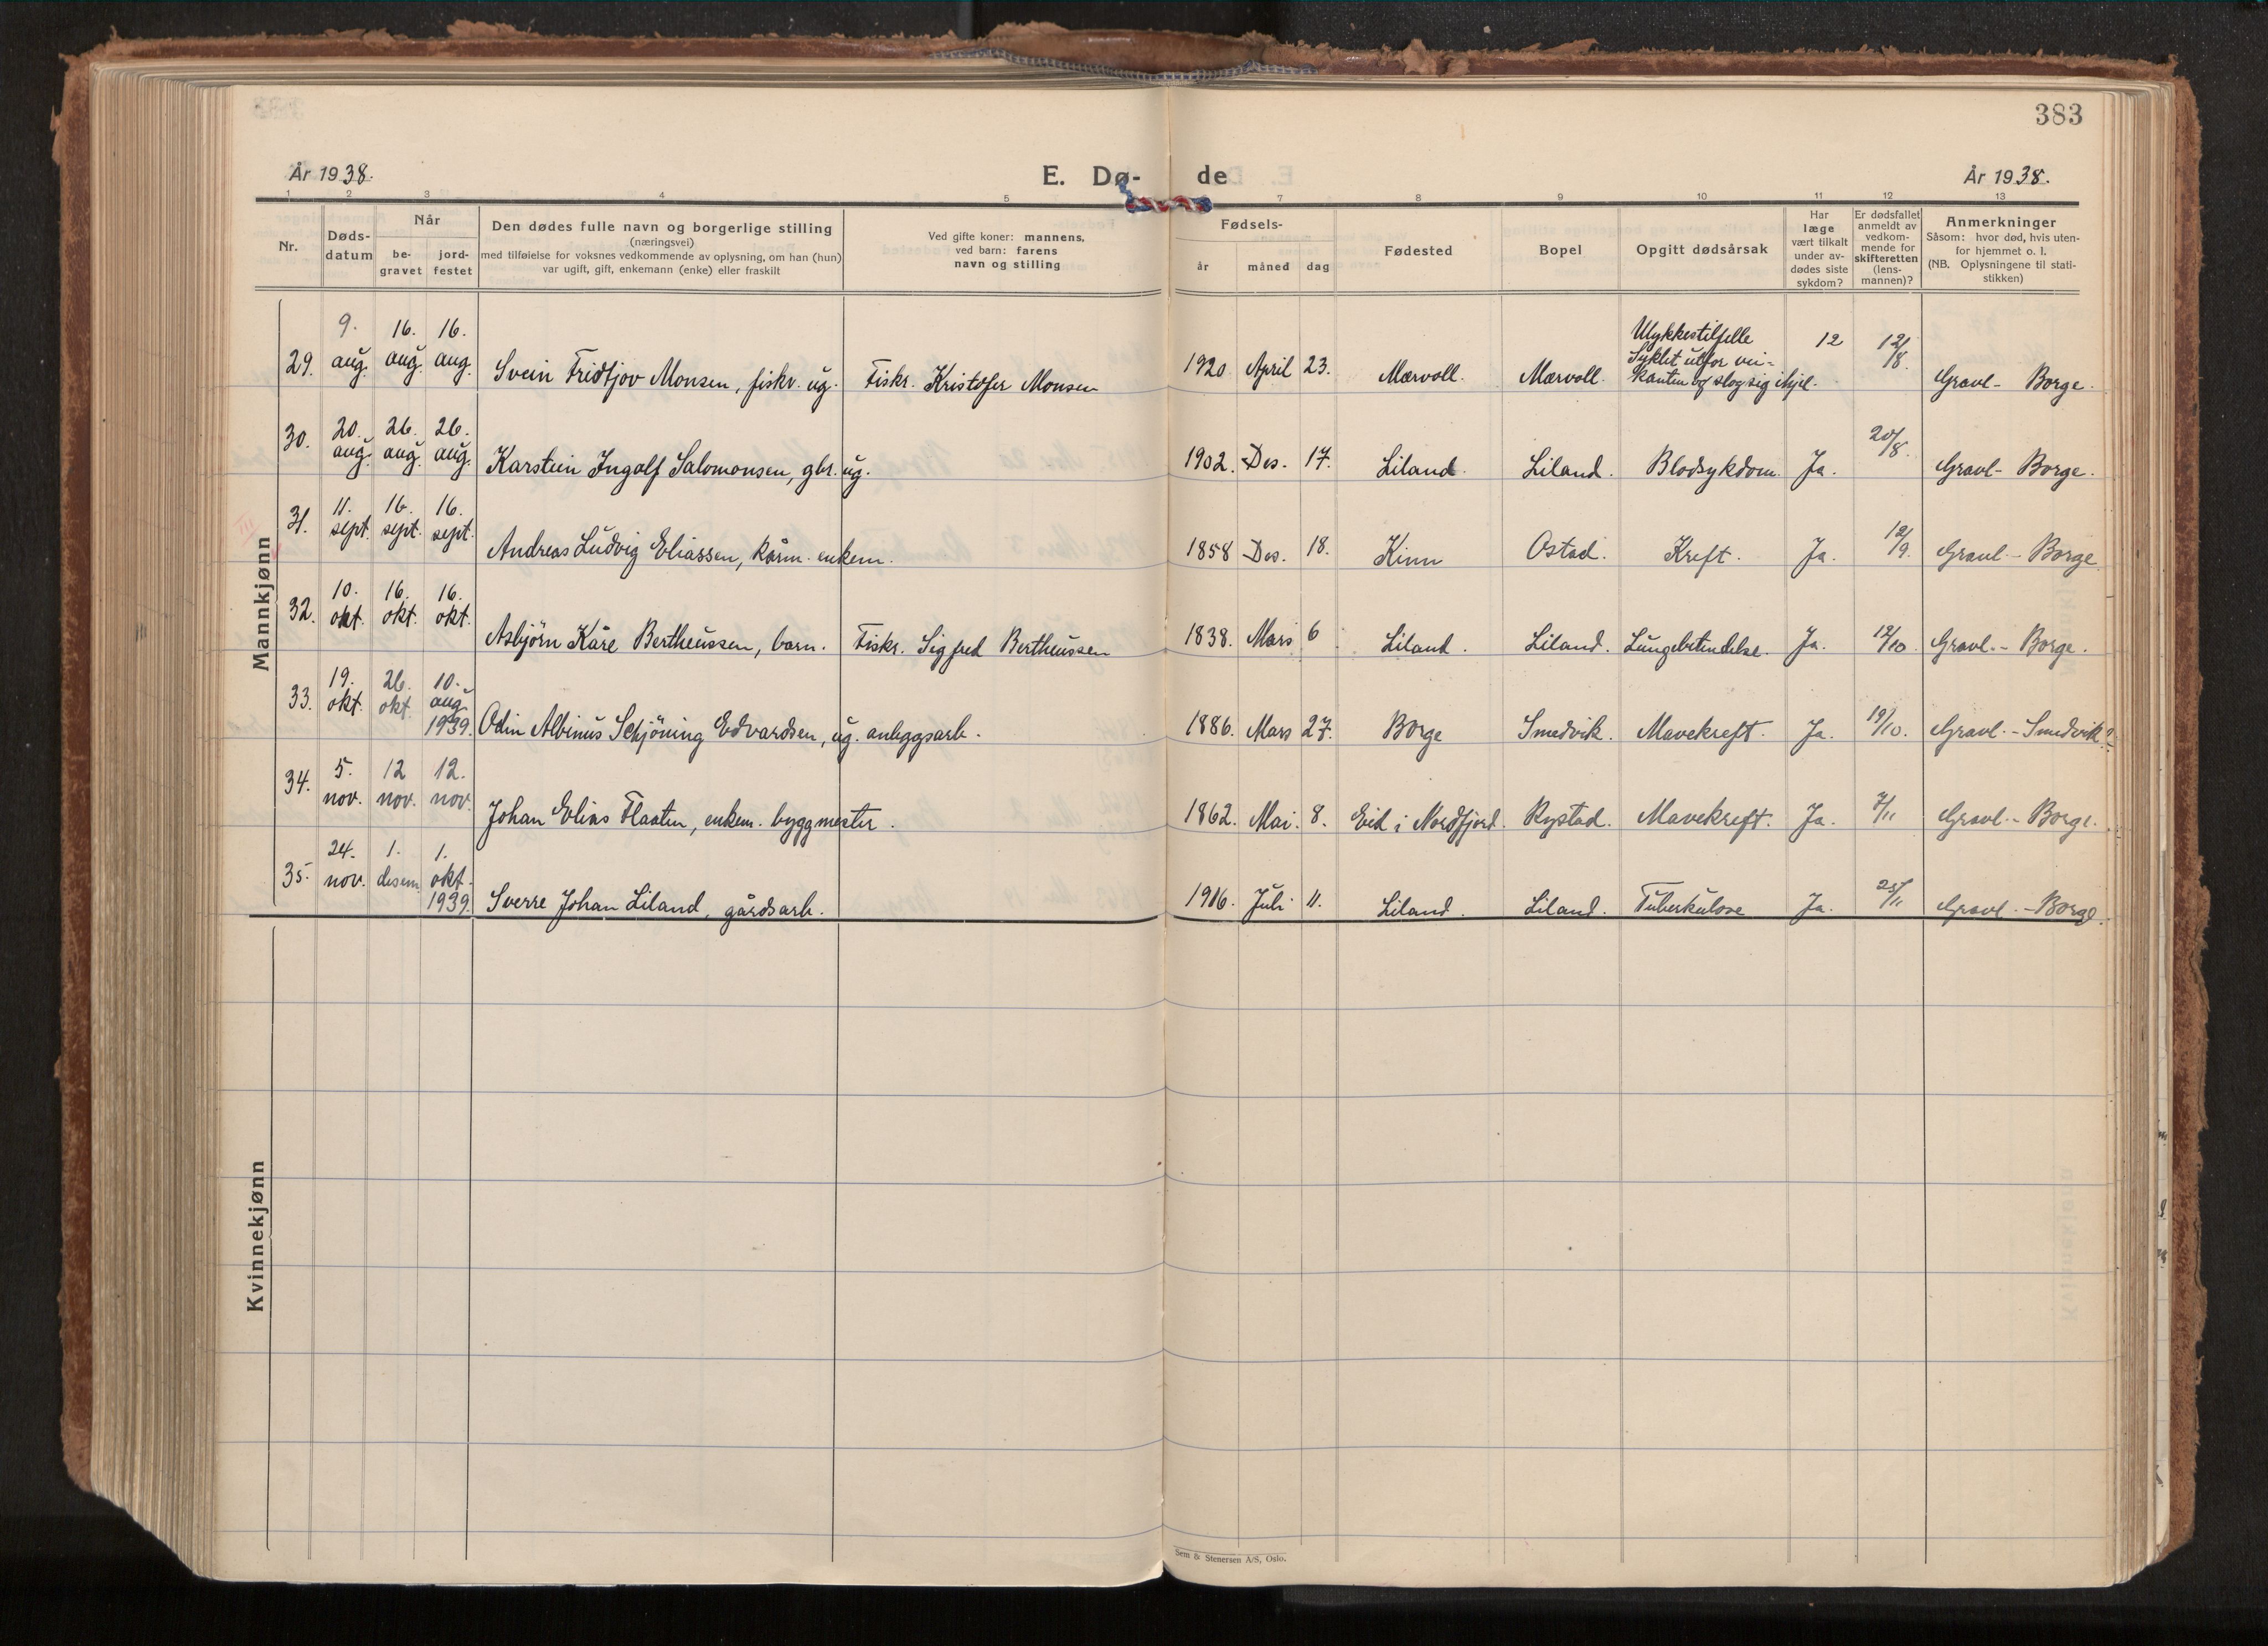 383
År 1938.
E. Dø- de
År 1938.
1 2 3 4 5 7 8 9 10 11 12 13
Nr.
Døds-
datum
Når
be-
gravet
jord-
festet
Den dødes fulle navn og borgerlige stilling
(næringsvei)
med tilføielse for voksnes vedkommende av oplysning, om han (hun)
var ugift, gift, enkemann (enke) eller fraskilt
Ved gifte koner: mannens,
ved barn: farens
navn og stilling
Fødsels-
år måned dag
Fødested
Bopel
Opgitt dødsårsak
Har
læge
vært tilkalt
under av-
dødes siste
sykdom?
Er dødsfallet
anmeldt av
vedkom-
mende for
skifteretten
(lens-
mannen)?
Anmerkninger
Såsom: hvor død, hvis uten-
for hjemmet o. l.
(NB. Oplysningene til stati-
stikken)
Mannkjønn
29. 9. aug. 16. aug. 16. aug. Svein Fridtjov Monsen, fiskr. ug. Fiskr. Kristofer Monsen 1920 April 23. Mærvoll. Mærvoll. Ulykkestilfelle
Syklet utfor vei-
kanten og slog sig ihjel. 12 12/8. Gravl- Borge.
30. 20. aug. 26. aug. 26. aug. Karstein Ingolf Salomonsen, gbr. ug. 1902. Des. 17. Liland. Liland. Blodsykdom. Ja. 20/8. Gravl- Borge.
31. 11. sept. 16. sept. 16. sept. Andreas Ludvig Eliassen, kårm. enkem. 1858 Des. 18. Kinn Ostad. Kreft. Ja. 12/9. Gravl.- Borge
32. 10. okt. 16. okt. 16. okt. Asbjörn Kåre Bertheussen, barn. Fiskr. Sigfred Bertheussen 1838. Mars 6 Liland. Liland. Lungebetendelse. Ja. 12/10 Gravl.- Borge.
33. 19. okt. 26. okt. 10. aug. 1939. Odin Albinus Schjöning Edvardsen, ug. anleggsarb. 1886. Mars 27. Borge Smedvik. Mavekreft. Ja. 19/10. Gravl.- Smedvik?
34. 5. nov. 12 nov. 12. nov. Johan Elias Flaaten, enkem. byggmester. 1862. Mai. 8. Eid i Nordfjord. Rystad. Mavekreft. Ja. 7/11 Gravl.- Borge.
35. 24. nov. 1. desem. 1. okt. 1939. Sverre Johan Liland, gårdsarb. 1916. Juli 11. Liland. Liland. Tuberkulose Ja. 25/11 Gravl.- Borge.
Kvinnekjønn
Sem & Stenersen A/S, Oslo.